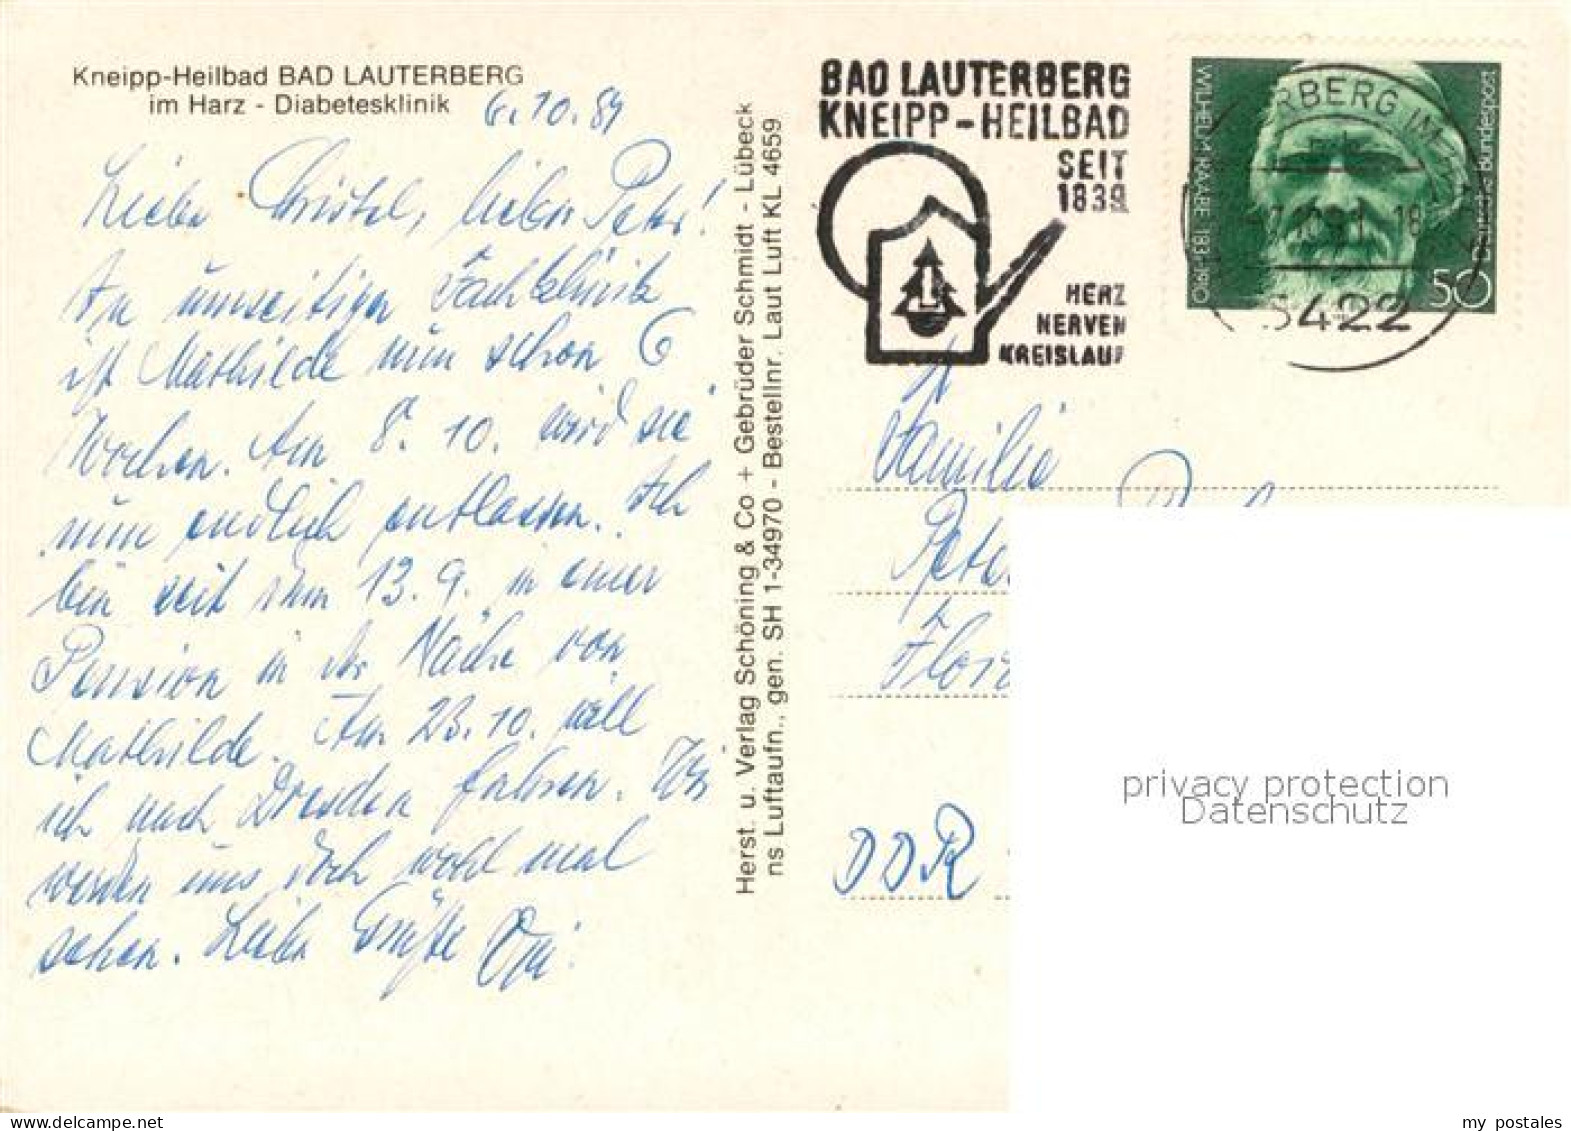 Kneipp-Heilbad BAD LAUTERBERG
im Harz - Diabetesklinik
6.10.81
Liebe Christel, lieber Peter!
In umseitiger Fachklinik
ist Mathilde nun schon 6
Wochen. Am 8. 10. wird sie
nun endlich entlassen. Ich
bin seit dem 13. 9. in einer
Pension in der Nähe von
Mathilde. Am 23. 10. will
ich nach Dresden fahren. Wir
werden uns doch wohl mal
sehen. Liebe Grüße
Herst. u. Verlag Schöning & Co + Gebrüder Schmidt - Lübeck
ns Luftaufn., gen. SH 1-34970 - Bestellnr. Laut Luft KL 4659
BAD LAUTERBERG
KNEIPP-HEILBAD
SEIT
1839
HERZ
NERVEN
KREISLAUF
WILHELM RAABE 1831-1910
Deutsche Bundespost
50
RBERG IM
10.81 18
5422
Familie
Peter
Flor
DDR
privacy protection
Datenschutz
my postales